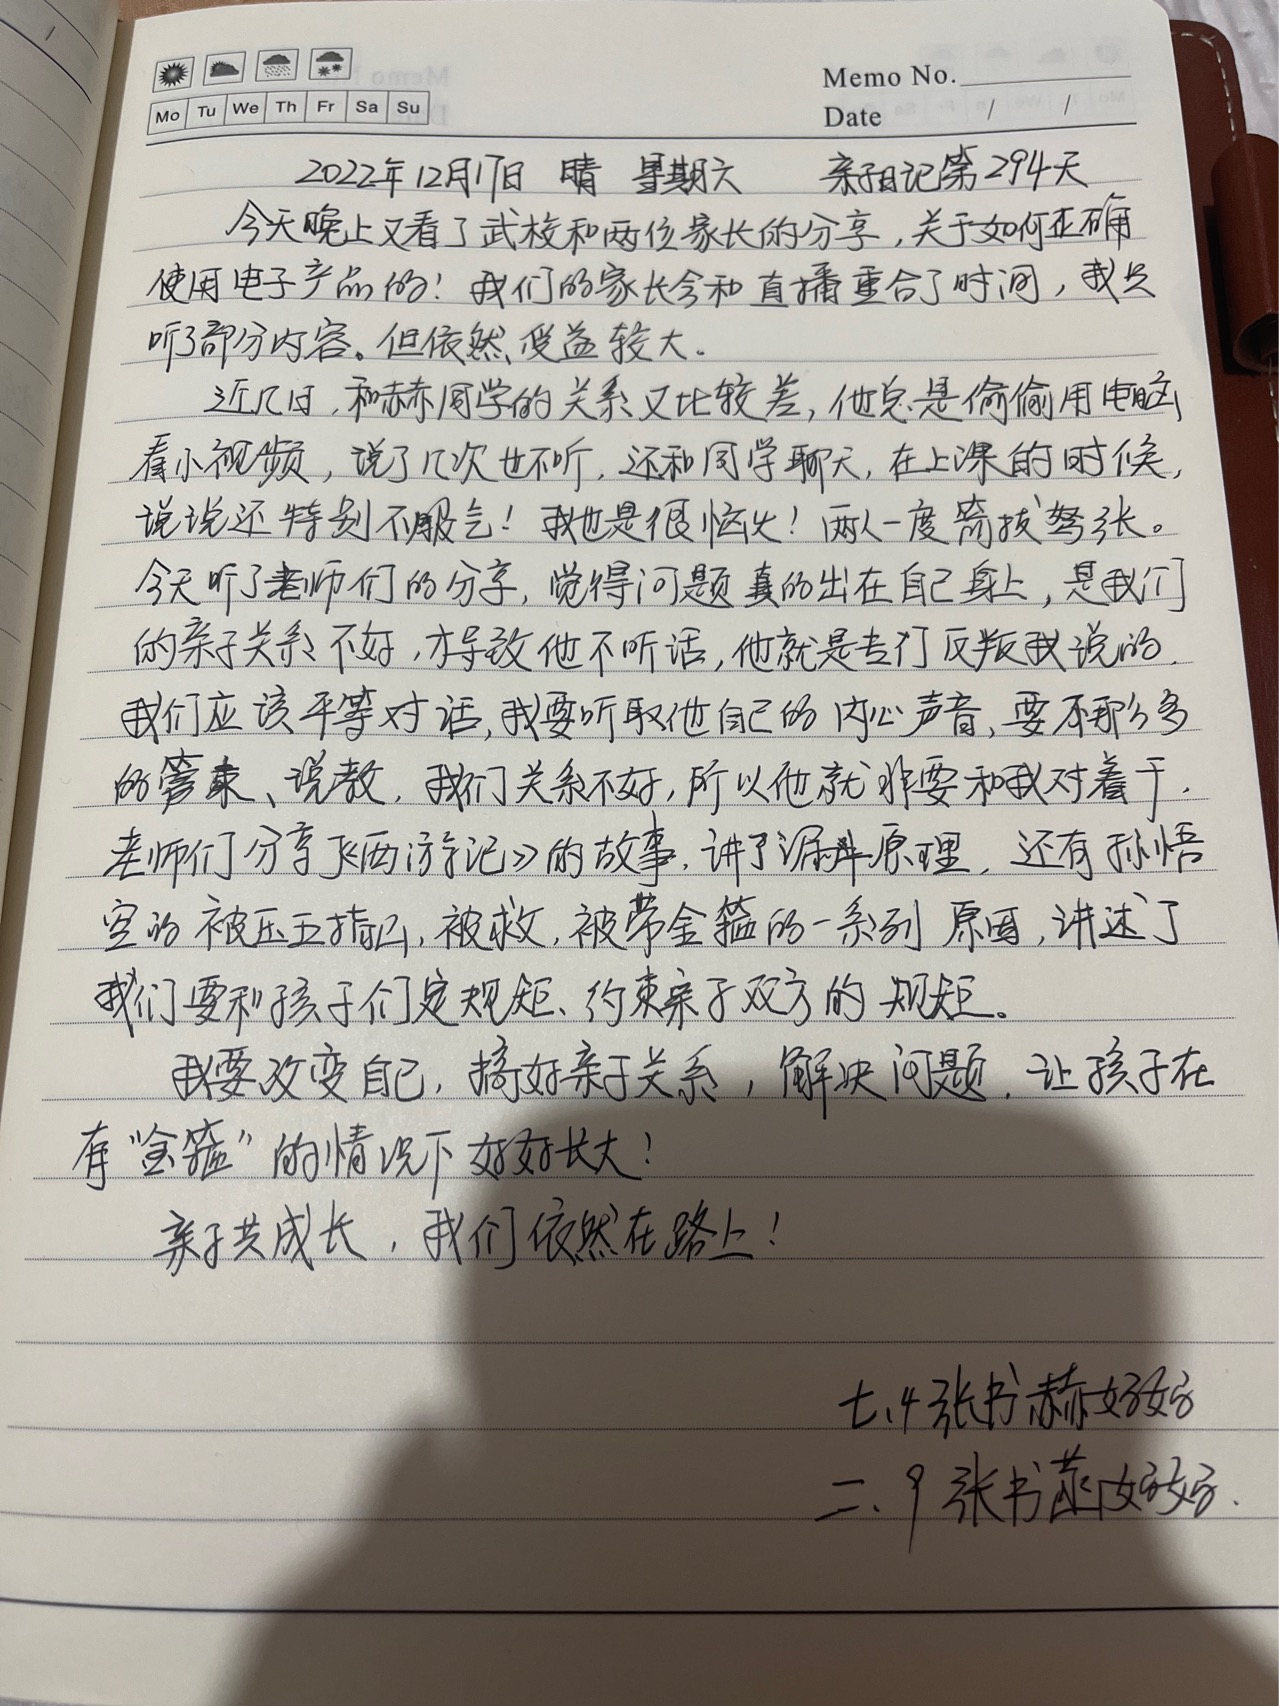 Memo No.
Mo Tu We Th Fr Sa Su
Date / /
2022年12月17日 晴 星期六 亲子日记第294天
今天晚上又看了武校和两位家长的分享，关于如何正确
使用电子产品的！我们的家长会和直播重合了时间，我只
听了部分内容。但依然受益较大。
近几日，和赫同学的关系又比较差，他总是偷偷用电脑
看小视频，说了几次也不听，还和同学聊天，在上课的时候，
说说还特别不服气！我也是很恼火！两人一度箭拔弩张。
今天听了老师们的分享，觉得问题真的出在自己身上，是我们
的亲子关系不好，才导致他不听话，他就是专打反叛我说的.
我们应该平等对话，我要听取他自己的内心声音，要不那么多
的管束、说教，我们关系不好，所以他就非要和我对着干.
老师们分享了《西游记》的故事，讲了漏斗原理，还有孙悟
空的被压五指山，被救，被带金箍的一系列原因，讲述了
我们要和孩子们定规矩、约束亲子双方的规矩。
我要改变自己，搞好亲子关系，解决问题，让孩子在
有“金箍”的情况下好好长大！
亲子共成长，我们依然在路上！
七.4张书赫妈妈
二.9张书菡妈妈.